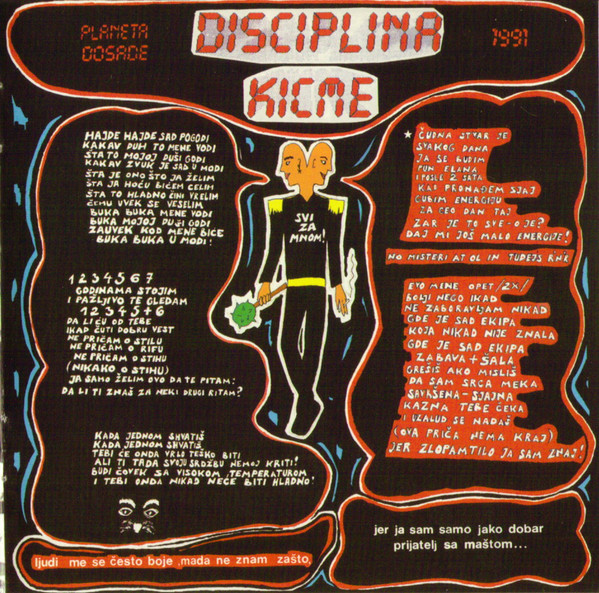 PLANETA
DOSADE
DISCIPLINA
KICME
1991
HAJDE HAJDE SAD POGODI
KAKAV DUH TO MENE VODI
ŠTA TO MOJOJ DUŠI GODI
KAKAV ZVUK JE SAD U MODI
ŠTA JE ONO ŠTO JA ŽELIM
ŠTA JA HOĆU BIĆEM CELIM
ŠTA TO HLADNO ČINI VRELIM
ČEMU UVEK SE VESELIM
BUKA BUKA MENE VODI
BUKA MOJOJ DUŠI GODI
ZAUVEK KOD MENE BIĆE
BUKA BUKA U MODI!
1 2 3 4 5 6 7
GODINAMA STOJIM
I PAŽLJIVO TE GLEDAM
1 2 3 4 5 + 6
DA LI ĆU OD TEBE
IKAD ČUTI DOBRU VEST
NE PRIČAM O STILU
NE PRIČAM O RIFU
NE PRIČAM O STIHU
(NIKAKO O STIHU)
JA SAMO ŽELIM OVO DA TE PITAM:
DA LI TI ZNAŠ ZA NEKI DRUGI RITAM?
KADA JEDNOM SHVATIŠ
KADA JEDNOM SHVATIŠ
TEBI ĆE ONDA VRLO TEŠKO BITI
ALI TI TADA SVOJU SRDŽBU NEMOJ KRITI!
BUDI ČOVEK SA VISOKOM TEMPERATUROM
I TEBI ONDA NIKAD NEĆE BITI HLADNO!
SVI
ZA
MNOM!
* ČUDNA STVAR JE
SVAKOG DANA
JA SE BUDIM
PUN ELANA
POSLE 2 SATA
KAD PRONAĐEM SJAJ
GUBIM ENERGIJU
ZA CEO DAN TAJ
ZAR JE TO SVE-O JE?
DAJ MI JOŠ MALO ENERGIJE!
NO MISTERI AT OL IN TUDEJS RNR
EVO MENE OPET /2X/
BOLJI NEGO IKAD
NE ZABORAVLJAM NIKAD
GDE JE SAD EKIPA
KOJA NIKAD NIJE ZNALA
GDE JE SAD EKIPA
ZABAVA + ŠALA
GREŠIŠ AKO MISLIŠ
DA SAM SRCA MEKA
SAVRŠENA - SJAJNA
KAZNA TEBE ČEKA
I UZALUD SE NADAŠ
(OVA PRIČA NEMA KRAJ)
JER ZLOPAMTILO JA SAM ZNAJ!
ljudi me se često boje ,mada ne znam zašto,
jer ja sam samo jako dobar
prijatelj sa maštom...